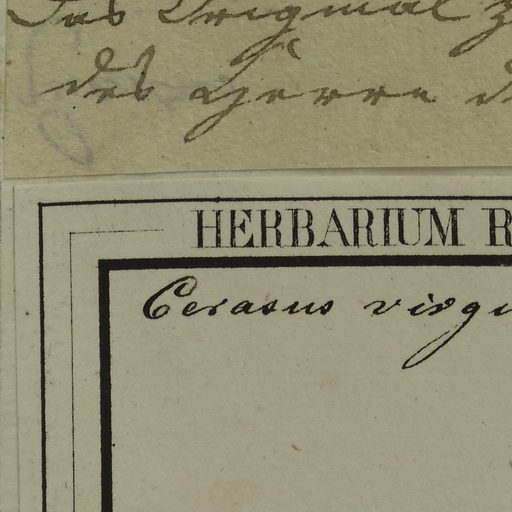 Das Original z
des Herrn d
HERBARIUM R
Cerasus virgi